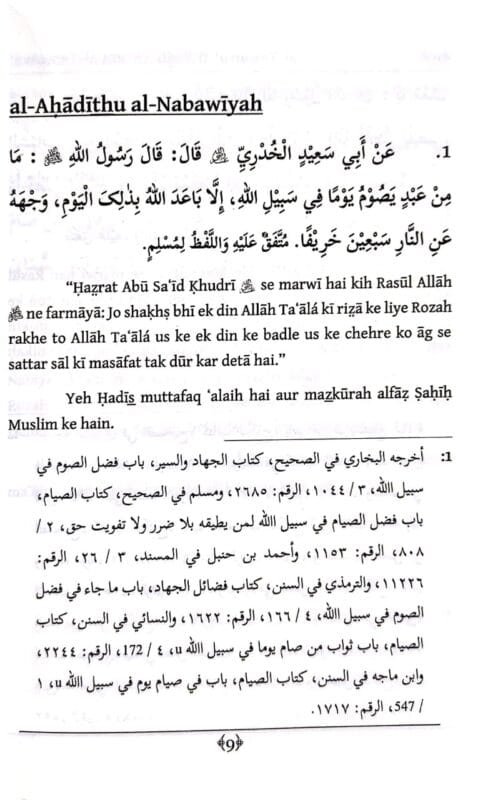 al-Aḥādīthu al-Nabawīyah
1. عَنْ أَبِي سَعِيْدٍ الْخُدْرِيِّ ﷺ قَالَ: قَالَ رَسُوْلُ اللهِ ﷺ : مَا
مِنْ عَبْدٍ يَصُوْمُ يَوْمًا فِي سَبِيْلِ اللهِ، إِلَّا بَاعَدَ اللهُ بِذٰلِکَ الْيَوْمِ، وَجْهَهُ
عَنِ النَّارِ سَبْعِيْنَ خَرِيْفًا. مُتَّفَقٌ عَلَيْهِ وَاللَّفْظُ لِمُسْلِمٍ.
“Ḥaz̤rat Abū Sa‘īd Khudrī se marwī hai kih Rasūl Allāh
ﷺ ne farmāyā: Jo shakhṣ bhī ek din Allāh Ta‘ālá kī riz̤ā ke liye Rozah
rakhe to Allāh Ta‘ālá us ke ek din ke badle us ke chehre ko āg se
sattar sāl kī masāfat tak dūr kar detā hai.”
Yeh Ḥadīs̲ muttafaq ‘alaih hai aur maz̲kūrah alfāz̤ Ṣaḥīḥ
Muslim ke hain.
1: أخرجه البخاري في الصحيح، كتاب الجهاد والسير، باب فضل الصوم في
سبيل الله، ٣ / ١٠٤٤، الرقم: ٢٦٨٥، ومسلم في الصحيح، كتاب الصيام،
باب فضل الصيام في سبيل الله لمن يطيقه بلا ضرر ولا تفويت حق، ٢ /
٨٠٨، الرقم: ١١٥٣، وأحمد بن حنبل في المسند، ٣ / ٢٦، الرقم:
١١٢٢٦، والترمذي في السنن، كتاب فضائل الجهاد، باب ما جاء في فضل
الصوم في سبيل الله، ٤ / ١٦٦، الرقم: ١٦٢٢، والنسائي في السنن، كتاب
الصيام، باب ثواب من صام يوما في سبيل الله u، ٤ / 172، الرقم: ٢٢٤٤،
وابن ماجه في السنن، كتاب الصيام، باب في صيام يوم في سبيل الله u، ١
/ 547، الرقم: ١٧١٧.
﴾9﴿